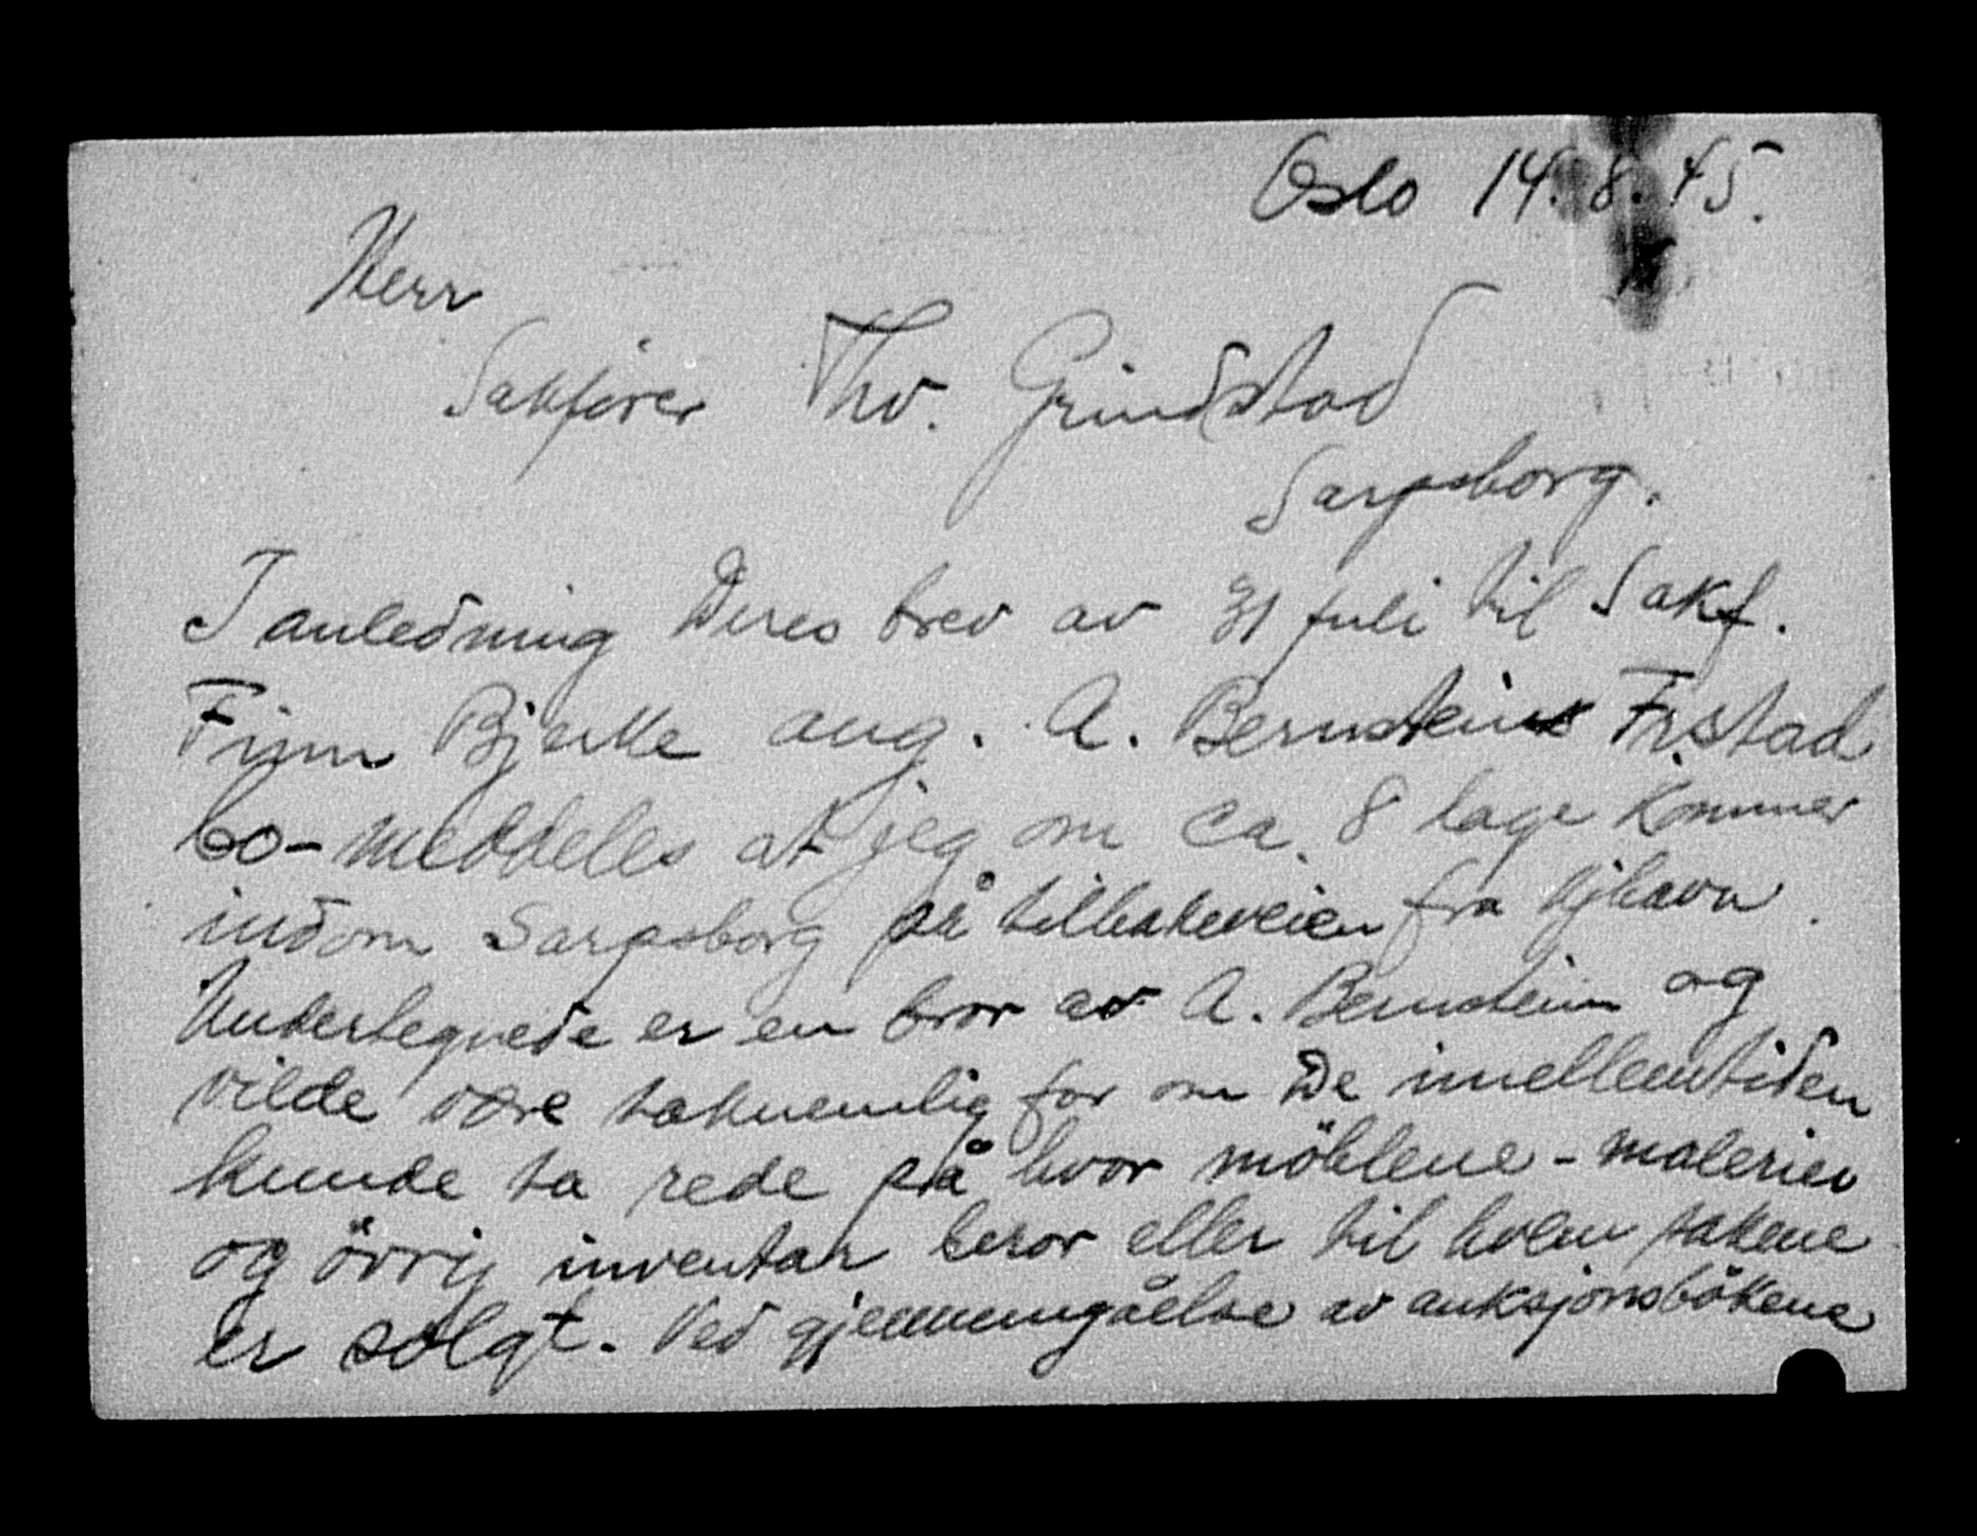 Oslo 14.8.45.
Herr
Sakfører Thv. Grindstad
Sarpsborg.
I anledning Deres brev av 31 juli til Sakf.
Finn Bjerke ang. A. Bernsteins Fr.stad
bo - meddeles at jeg om ca. 8 dage kommer
indom Sarpsborg på tilbakeveien fra Kjbhavn.
Undertegnede er en bror av A. Bernstein og
vilde være taknemlig for om De imellemtiden
kunde ta rede på hvor möblene - malerier
og övrig inventar beror eller til hvem sakene
er solgt. Ved gjennemgåelse av auksjonsbökene